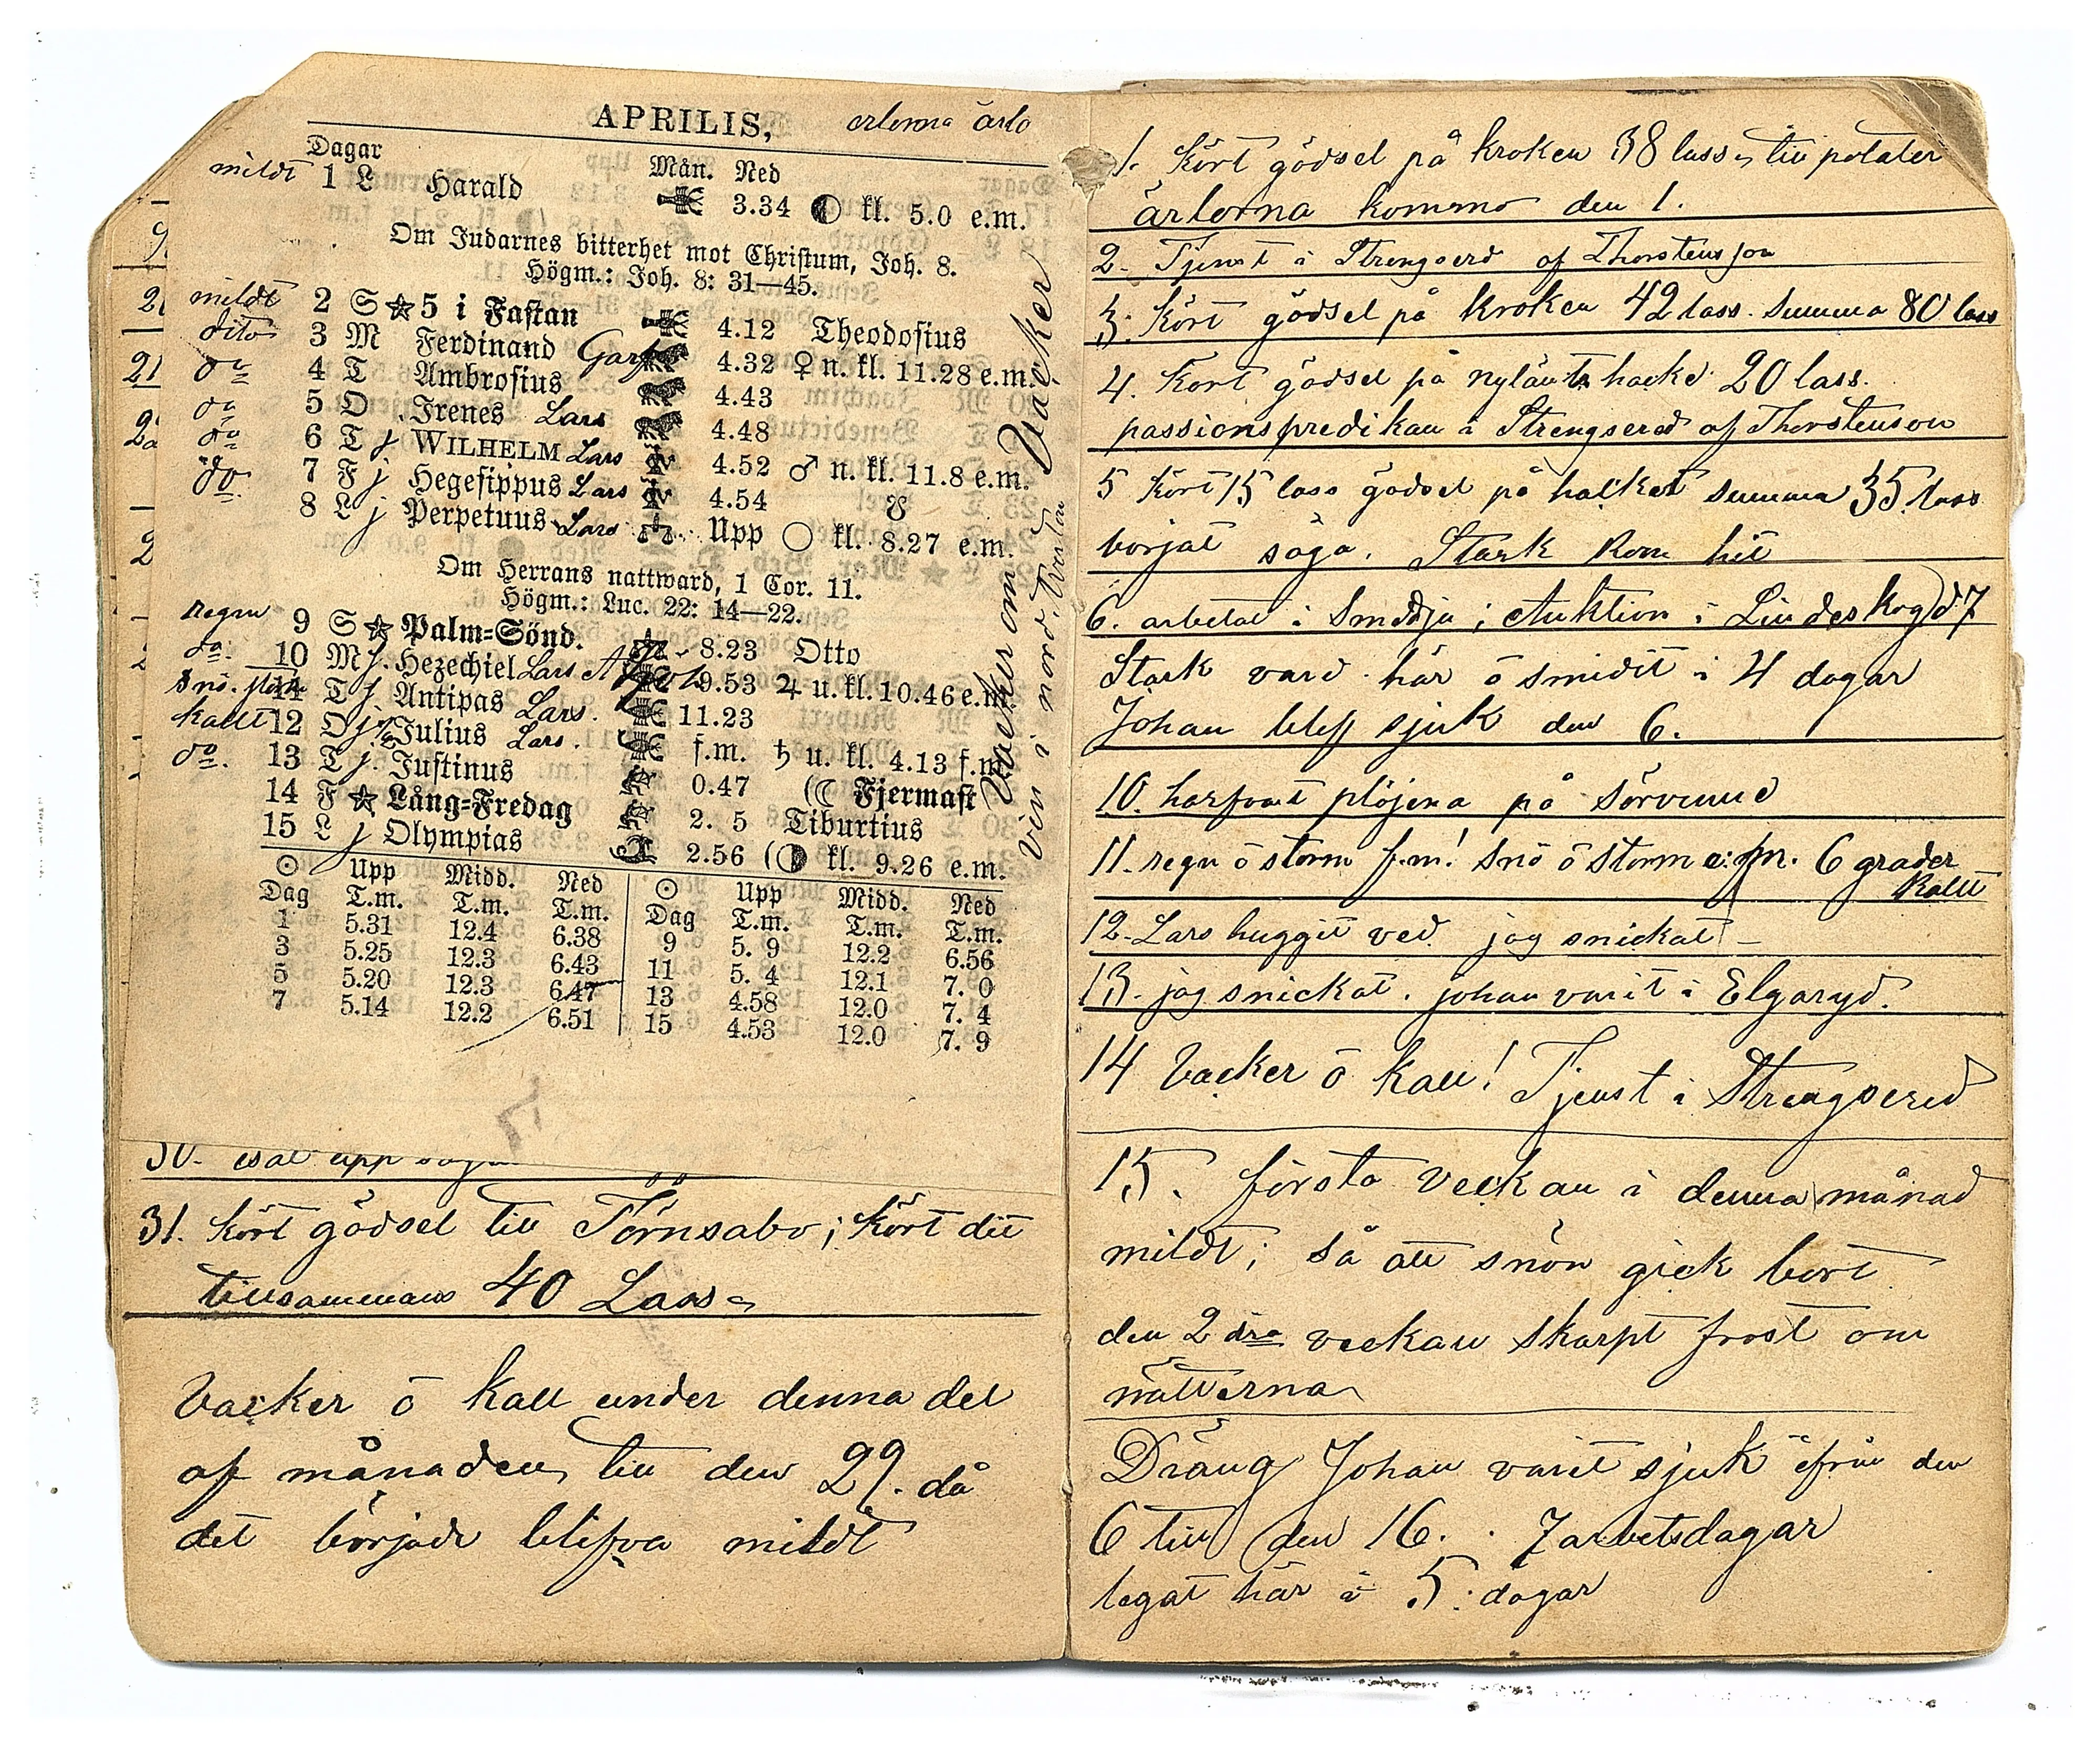 APRILIS,
Dagar Mån. Ned
mildt 1 L Harald 3.34 kl. 5.0 e.m.
Om Judarnes bitterhet mot Christum, Joh. 8.
Högm.: Joh. 8: 31—45.
mildt 2 S 5 i Fastan 4.12 Theodosius
dito 3 M Ferdinand 4.32 ♀ n. kl. 11.28 e.m.
do 4 T Ambrosius 4.43
do 5 O Irenes Lars 4.48
do 6 T j WILHELM Lars 4.52 ♂ n. kl. 11.8 e.m.
do 7 F j Hegesippus Lars 4.54 ☋
8 L j Perpetuus Lars Upp ○ kl. 8.27 e.m.
Om Herrans nattward, 1 Cor. 11.
Högm.: Luc. 22: 14—22.
regn 9 S Palm=Sönd. 8.23 Otto
do 10 M j. Hezechiel Lars 9.53 ♃ u. kl. 10.46 e.m.
snö 11 T j. Antipas Lars. 11.23
kallt 12 O j Julius Lars. f.m. ♄ u. kl. 4.13 f.m.
do. 13 T j. Justinus 0.47 (☾ Fjermast
14 F Lång=Fredag 2. 5 Tiburtius
15 L j Olympias 2.56 kl. 9.26 e.m.
Vacker om Vacker
vin i nord.
☉ Upp Midd. Ned ☉ Upp Midd. Ned
Dag T.m. T.m. T.m. Dag T.m. T.m. T.m.
1 5.31 12.4 6.38 9 5. 9 12.2 6.56
3 5.25 12.3 6.43 11 5. 4 12.1 7. 0
5 5.20 12.3 6.47 13 4.58 12.0 7. 4
7 5.14 12.2 6.51 15 4.53 12.0 7. 9
31. Kört gödsel till Törnsabo; Kört dit
tillsammans 40 Lass
Vacker ō kall under denna del
af månaden, till den 29. då
det började blifva mildt
1. Kört gödsel på kroken 38 lass till potater
ärlorna kommo den 1.
2. Tjenst i Strengserd af Thorstensson
3. Kört gödsel på kroken 42 lass. Summa 80 lass
4. Kört gödsel på 20 lass.
passionspredikan i Strengsered af Thorstenson
5 Kört 15 lass gödsel på summa 35 lass
börjat såga. Stark kom hit
6. arbetat i Smedja; Auktion i Lindeskog d 7
Stark vard här ō smidit i 4 dagar
Johan blef sjuk den 6.
10. harfvat plöjena på
11. regn ō storm f.m! snö ō storm e.m. 6 grader
kallt
12. Lars huggit ved. jag snickat –
13. jag snickat. johan varit i Elgaryd.
14 Vacker ō kall! Tjenst i Strengsered
15. första veckan i denna månad
mildt; så att snön gick bort
den 2dra veckan skarpt frost om
nätterna
Dräng Johan varit sjuk ifrån den
6 till den 16. . 7 arbetsdagar
legat här i 5. dagar